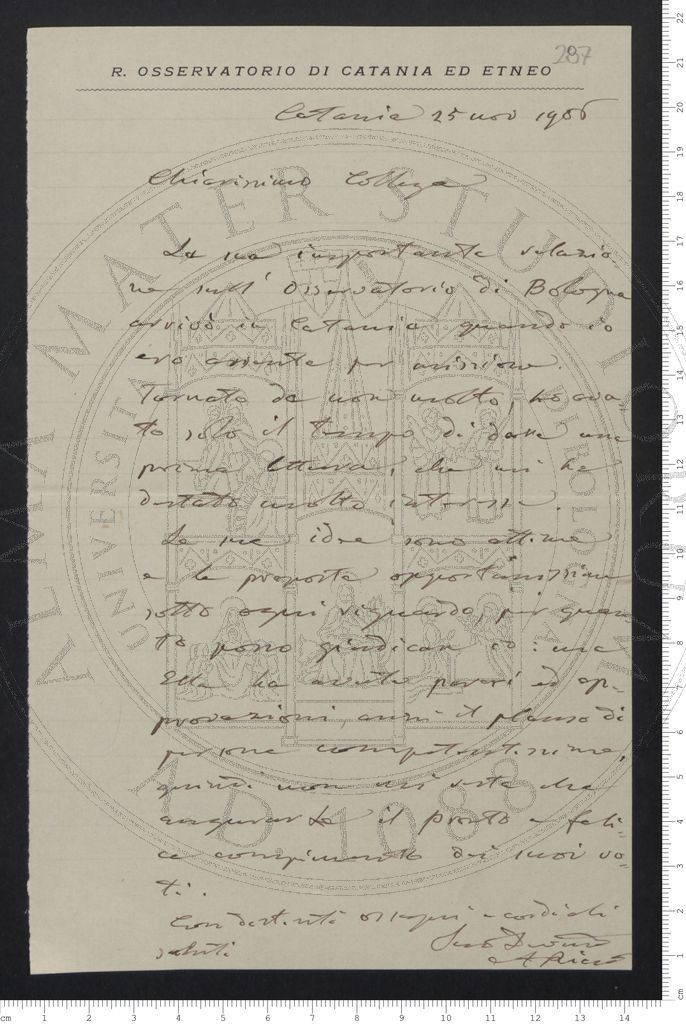 287
R. OSSERVATORIO DI CATANIA ED ETNEO
Catania 25 nov 1906
Chiarissimo Collega
La sua importante relazio
ne sull' Osservatorio di Bologna
arrivò in Catania quando io
ero assente per missione.
Tornato da non molto, ho avu-
to solo il tempo di dare una
prima lettura, che mi ha
destato molto interesse.
Le sue idee sono ottime
e le proposte opportunissime
sotto ogni riguardo, per quan
to posso giudicare io: ma
Ella ha avuto pareri ed ap-
provazioni, anzi il plauso di
persone competentissime,
quindi non mi resta che
augurarLe il pronto e feli-
ce compimento dei suoi vo-
ti.
Con distinti ossequi e cordiali
saluti
Suo Devmo
A Riccò
ALMA MATER STUDIORUM
UNIVERSITA
A.D. 1088